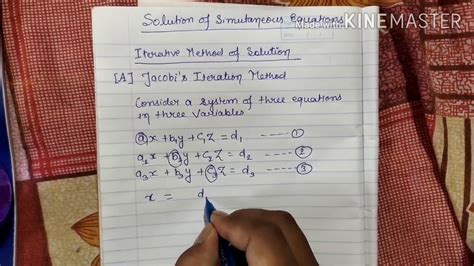 Solution of Simutaneous Equations
Made with KINEMASTER
Iterative Method of Solution
[A] Jacobi's Iteration Method
Consider a system of three equations
in three variables
a₁x + b₁y + c₁z = d₁ ------ ①
a₂x + b₂y + c₂z = d₂ ------ ②
a₃x + b₃y + c₃z = d₃ ------ ③
x = d